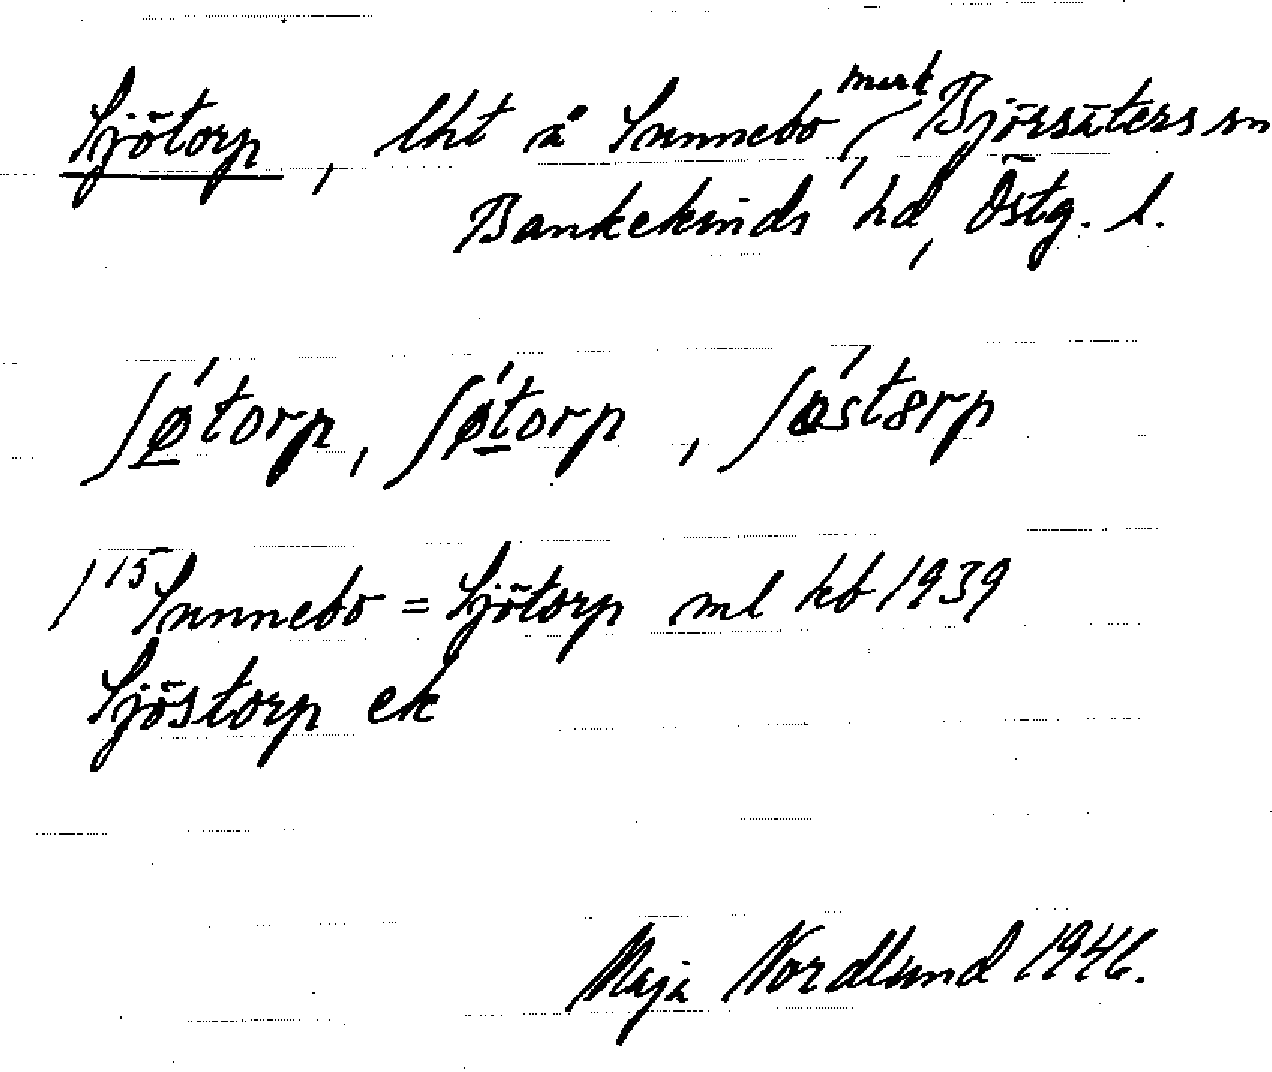 Sjötorp, lht å Sunnebo mark, Björsäters sn
Bankekinds hd, Östg. l.
ʃǿtorp, ʃǿtorp, ʃǿstɵrp
1/15 Sunnebo = Sjötorp ml kb 1939
Sjöstorp ek
Maja Nordlund 1946.